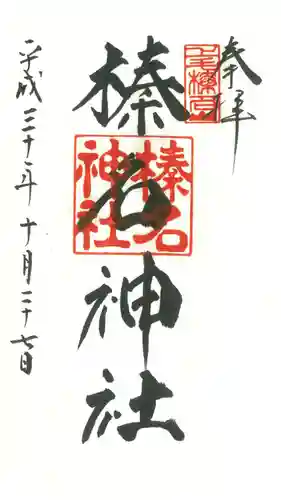 奉拝
榛名神社
榛名
神社
平成三十年十月二十七日